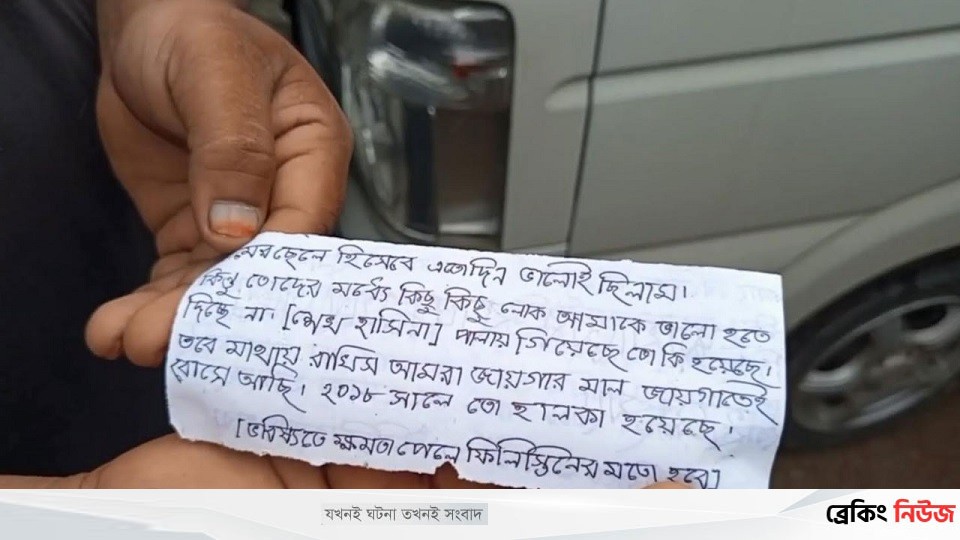 মেরছেলে হিসেবে এতোদিন ভালোই ছিলাম।
কিন্তু তোদের মধ্যে কিছু কিছু লোক আমাকে ভালো হতে
দিচ্ছে না। [শেখ হাসিনা] পালায় গিয়েছে তো কি হয়েছে।
তবে মাথায় রাখিস আমরা জায়গার মাল জায়গাতেই
বোসে আছি। ২০১৮ সালে তো হালকা হয়েছে।
[ভবিষ্যিতে ক্ষমতা পেলে ফিলিস্তিনের মতো হবে]
যখনই ঘটনা তখনই সংবাদ
ব্রেকিং নিউজ